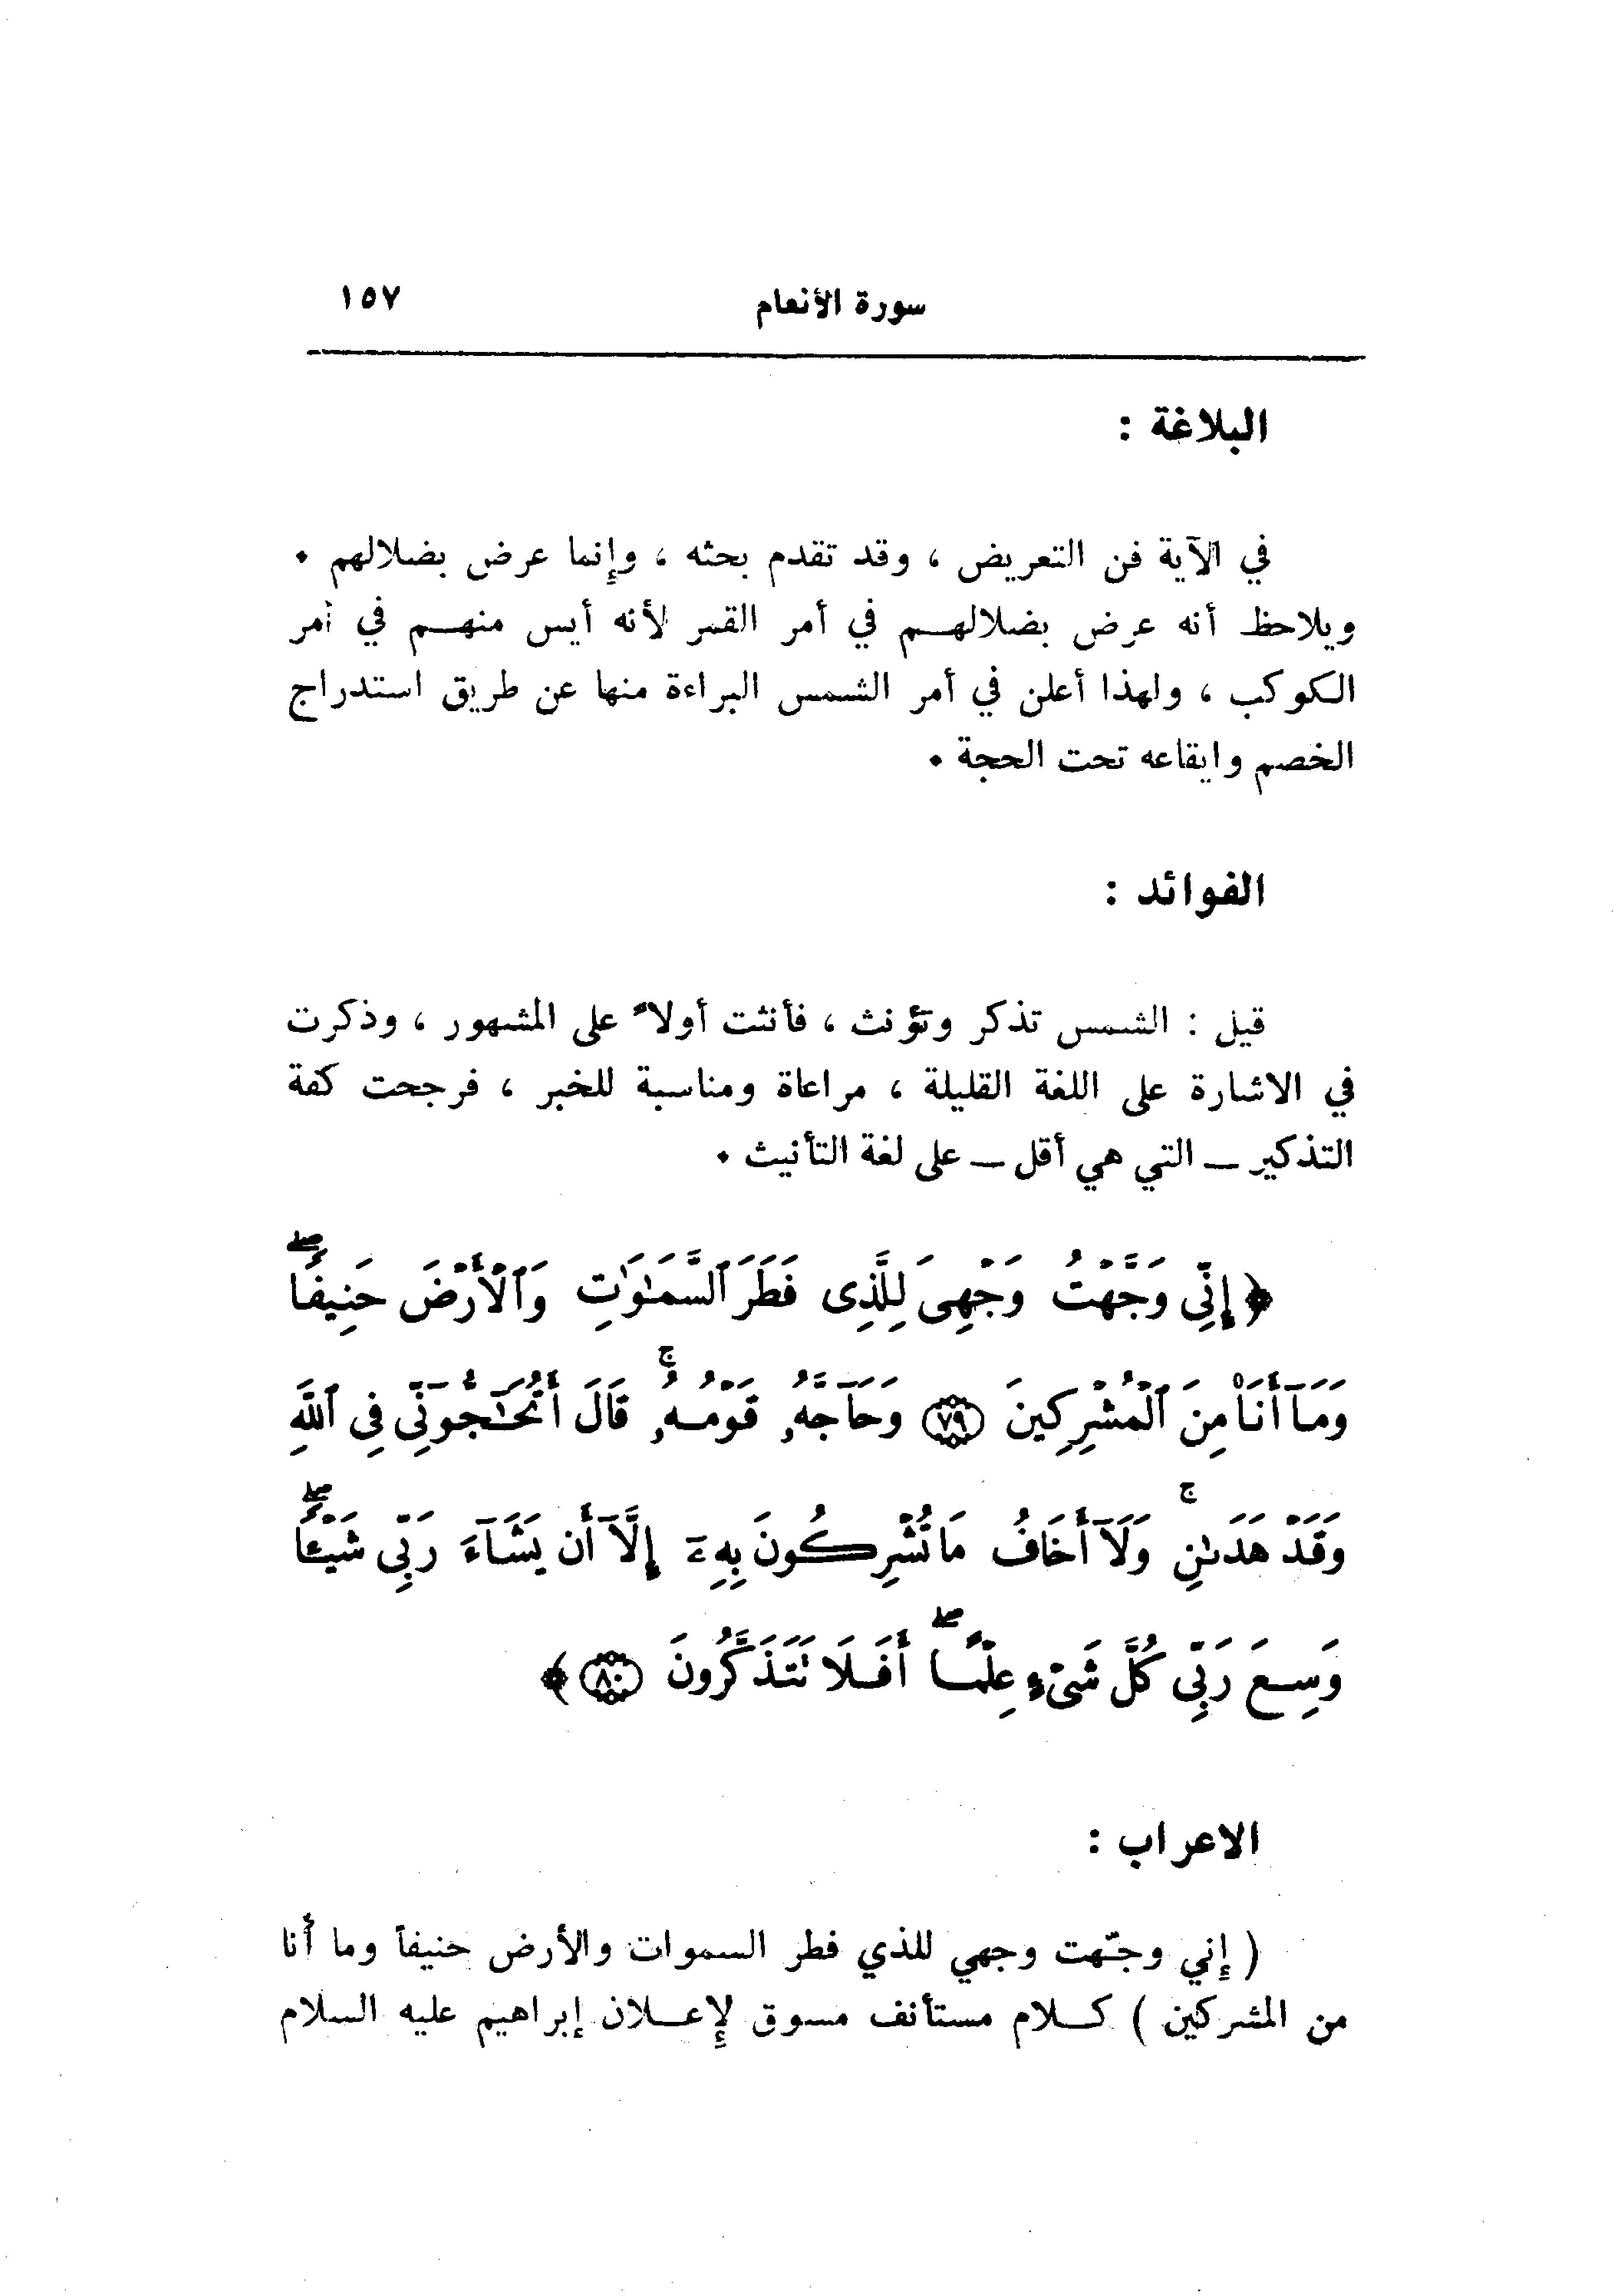 سورة الأنعام ١٥٧
البلاغة :
في الآية فن التعريض ، وقد تقدم بحثه ، وإنما عرض بضلالهم .
ويلاحظ أنه عرض بضلالهم في أمر القمر لأنه أيس منهم في أمر
الكوكب ، ولهذا أعلن في أمر الشمس البراءة منها عن طريق استدراج
الخصم وايقاعه تحت الحجة .
الفوائد :
قيل : الشمس تذكر وتؤنث ، فأنثت أولاً على المشهور ، وذكرت
في الاشارة على اللغة القليلة ، مراعاة ومناسبة للخبر ، فرجحت كفة
التذكير – التي هي أقل – على لغة التأنيث .
﴿ إِنِّي وَجَّهْتُ وَجْهِيَ لِلَّذِى فَطَرَ ٱلسَّمَـٰوَٰتِ وَٱلْأَرْضَ حَنِيفًا ۖ
وَمَآ أَنَا۠ مِنَ ٱلْمُشْرِكِينَ ﴿٧٩﴾ وَحَآجَّهُۥ قَوْمُهُۥ ۚ قَالَ أَتُحَـٰٓجُّوٓنِّى فِى ٱللَّهِ
وَقَدْ هَدَىٰنِ ۚ وَلَآ أَخَافُ مَا تُشْرِكُونَ بِهِۦٓ إِلَّآ أَن يَشَآءَ رَبِّى شَيْـًٔا ۖ
وَسِعَ رَبِّى كُلَّ شَىْءٍ عِلْمًا ۖ أَفَلَا تَتَذَكَّرُونَ ﴿٨٠﴾ ﴾
الاعراب :
( إني وجّهت وجهي للذي فطر السموات والأرض حنيفاً وما أنا
من المشركين ) كلام مستأنف مسوق لإعلان إبراهيم عليه السلام